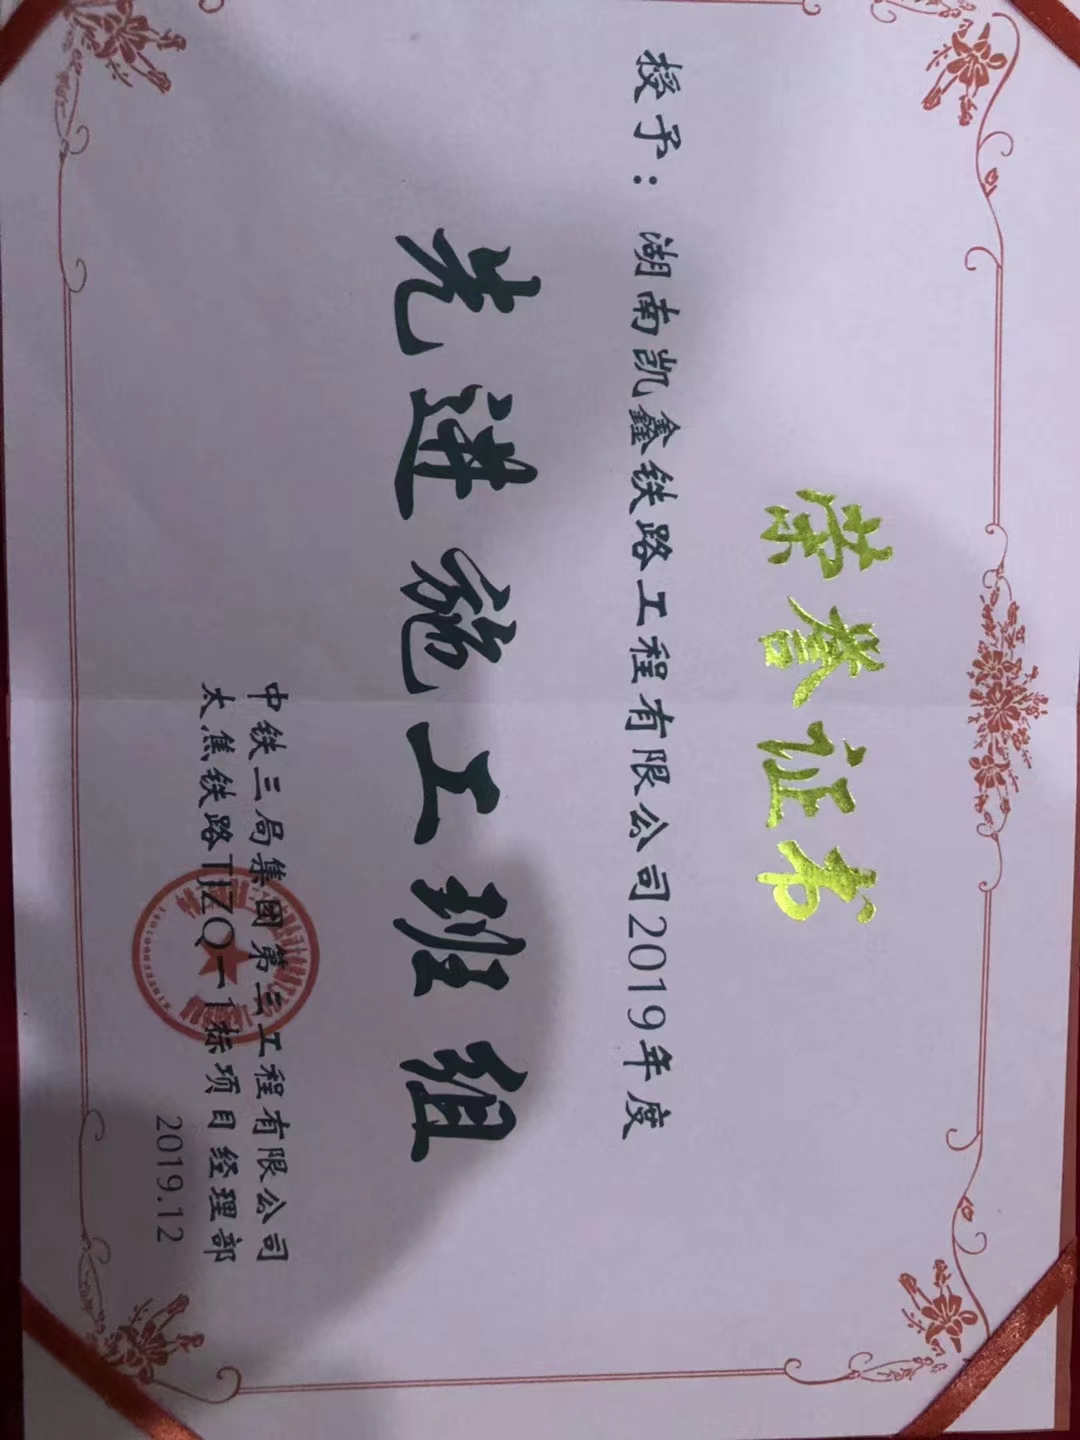 荣誉证书
授予：湖南凯鑫铁路工程有限公司2019年度
先进施工班组
中铁三局集团第三工程有限公司
太焦铁路TJZQ－1标项目经理部
2019.12